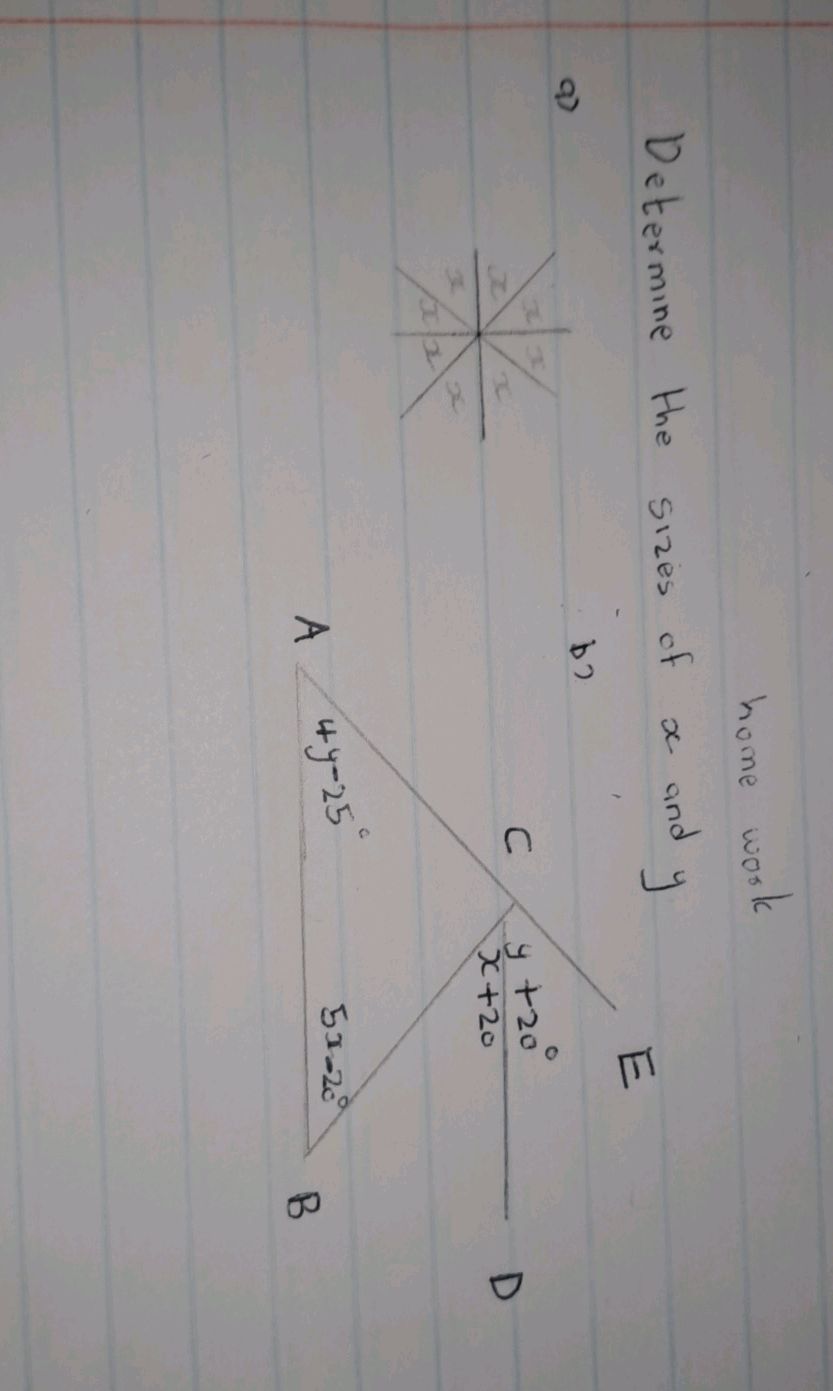 home work
Determine the sizes of x and y
a)
x
x
x
x
x
x
x
x
b)
E
C
y + 20°
x + 20
D
A
4y-25°
5x-20°
B